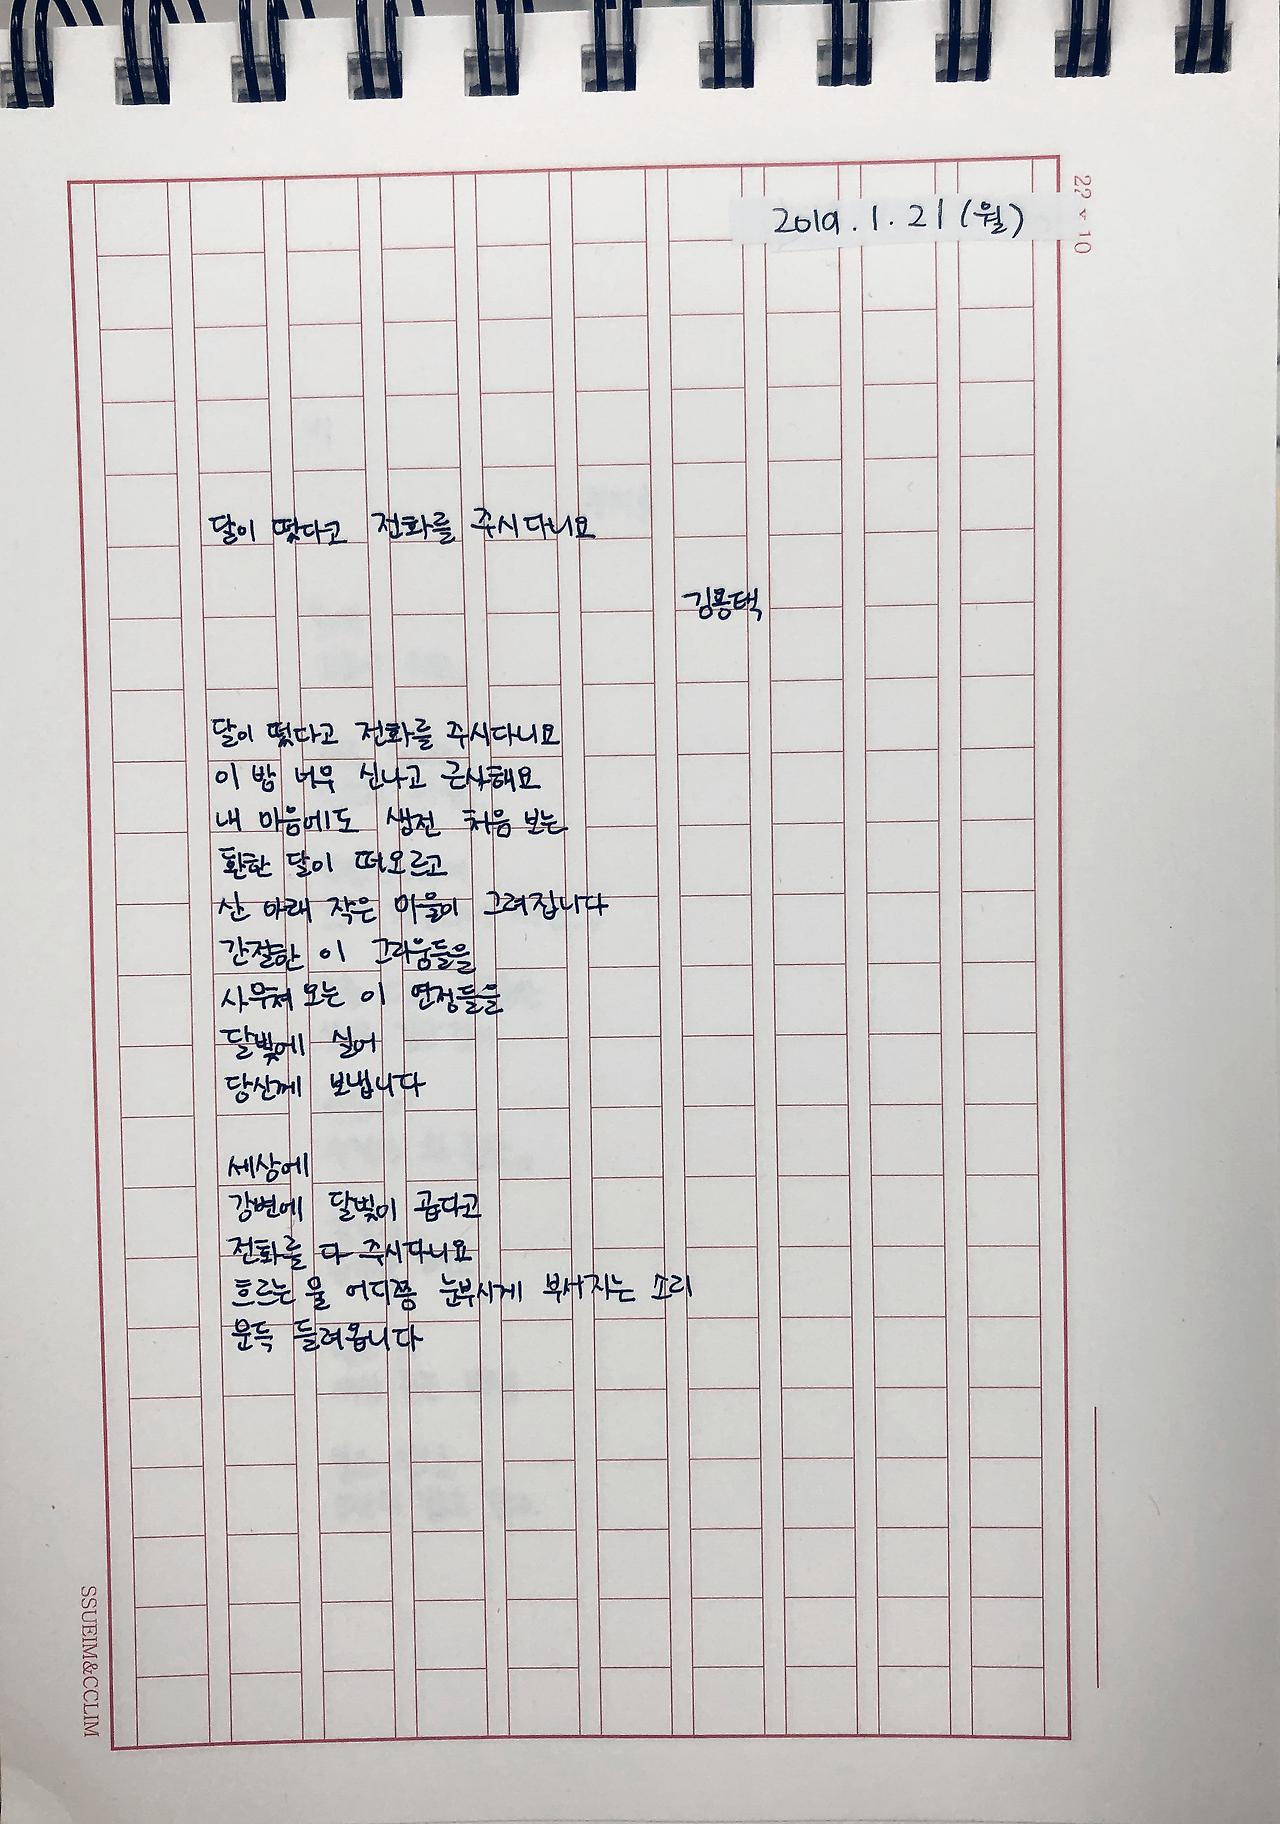 2019.1.21(월)
22×10
달이 떴다고 전화를 주시다니요
김용택
달이 떴다고 전화를 주시다니요
이 밤 너무 신나고 근사해요
내 마음에도 생전 처음 보는
환한 달이 떠오르고
산 아래 작은 마을이 그려집니다
간절한 이 그리움들을
사무쳐 오는 이 연정들을
달빛에 실어
당신께 보냅니다
세상에
강변에 달빛이 곱다고
전화를 다 주시다니요
흐르는 물 어디쯤 눈부시게 부서지는 소리
문득 들려옵니다
SSUEIM&CCLIM